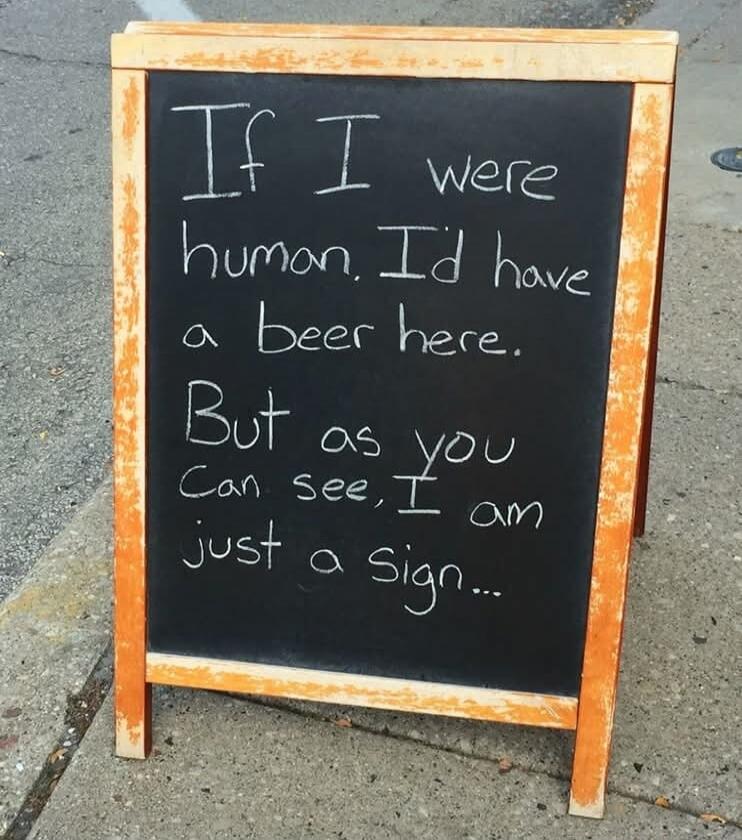 If I were
human. I'd have
a beer here.
But as you
Can see, I am
just a sign...